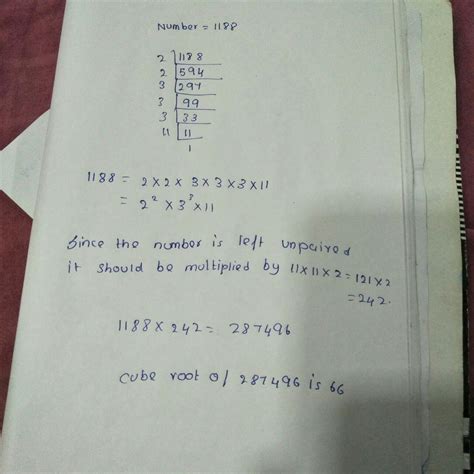 Number = 1188
2 | 1188
2 | 594
3 | 297
3 | 99
3 | 33
11 | 11
1
1188 = 2 × 2 × 3 × 3 × 3 × 11
= 2² × 3³ × 11
Since the number is left unpaired
it should be multiplied by 11 × 11 × 2 = 121 × 2
= 242.
1188 × 242 = 287496
cube root of 287496 is 66